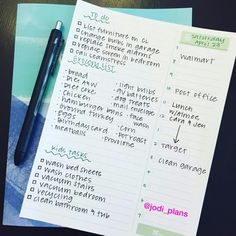 To do
□ List furniture on CL
□ change bulbs in garage
□ replace smoke alarms
□ replace screen in bedroom
□ call seamstress
Grocery List
· bread
· Diet
· Diet coke
· chicken
· hamburger buns
· ground turkey
· Eggs
· Birthday card
· Meatballs
· light bulbs
· 9V batteries
· dog treats
· mail envelope
· face wash
· corn
· Potatoes
· Provolone
Kids tasks
□ wash bed sheets
□ wash clothes
□ vacuum stairs
□ vacuum bedroom
□ recycling
□ clean bathroom & tub
Saturday
April 28
7
8
9
10
11
12
1
2
3
4
5
Walmart
Post office
Lunch
w/
& Jen
Target
clean garage
@jodi_plans